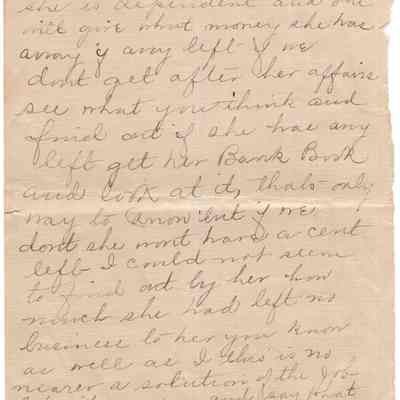 she is dependent and she
will give what money she has
away if any left - if we
dont get after her affairs
see what you think and
find out if she has any
left get her Bank Book
and look at it, thats only
way to know but if we
dont she wont have a cent
left - I could not seem
to find out by her how
much she had left no
business to her you know
as well as I this is no
nearer a solution of the Job
and say what